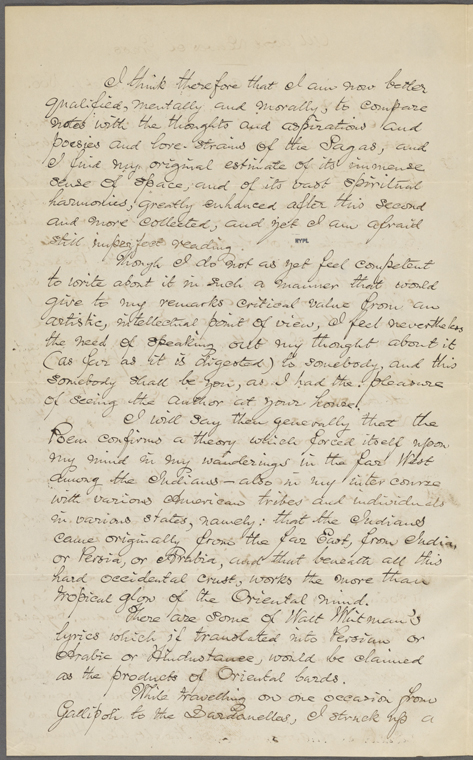 I think therefore that I am now better
qualified, mentally and morally, to compare
notes with the thoughts and aspirations and
poesies and love-strains of the Sagas, and
I find my original estimate of its immense
sense of space, and of its vast spiritual
harmonies, greatly enhanced after this second
and more collected, and yet I am afraid
still imperfect reading.
NYPL
Though I do not as yet feel competent
to write about it in such a manner that would
give to my remarks critical value from an
artistic, intellectual point of view, I feel nevertheless
the need of speaking out my thought about it
(as far as it is digested) to somebody, and this
somebody shall be you, as I had the pleasure
of seeing the author at your house.
I will say then generally that the
Poem confirms a theory which forced itself upon
my mind in my wanderings in the far West
among the Indians – also in my intercourse
with various American tribes and individuals
in various states, namely: that the Indians
came originally from the far East, from India,
or Persia, or Arabia, and that beneath all this
hard occidental crust, works the more than
tropical glow of the Oriental mind.
There are some of Walt Whitman's
lyrics which if translated into Persian or
Arabic or Hindustanee, would be claimed
as the products of Oriental bards.
While travelling on one occasion from
Gallipoli to the Dardanelles, I struck up a